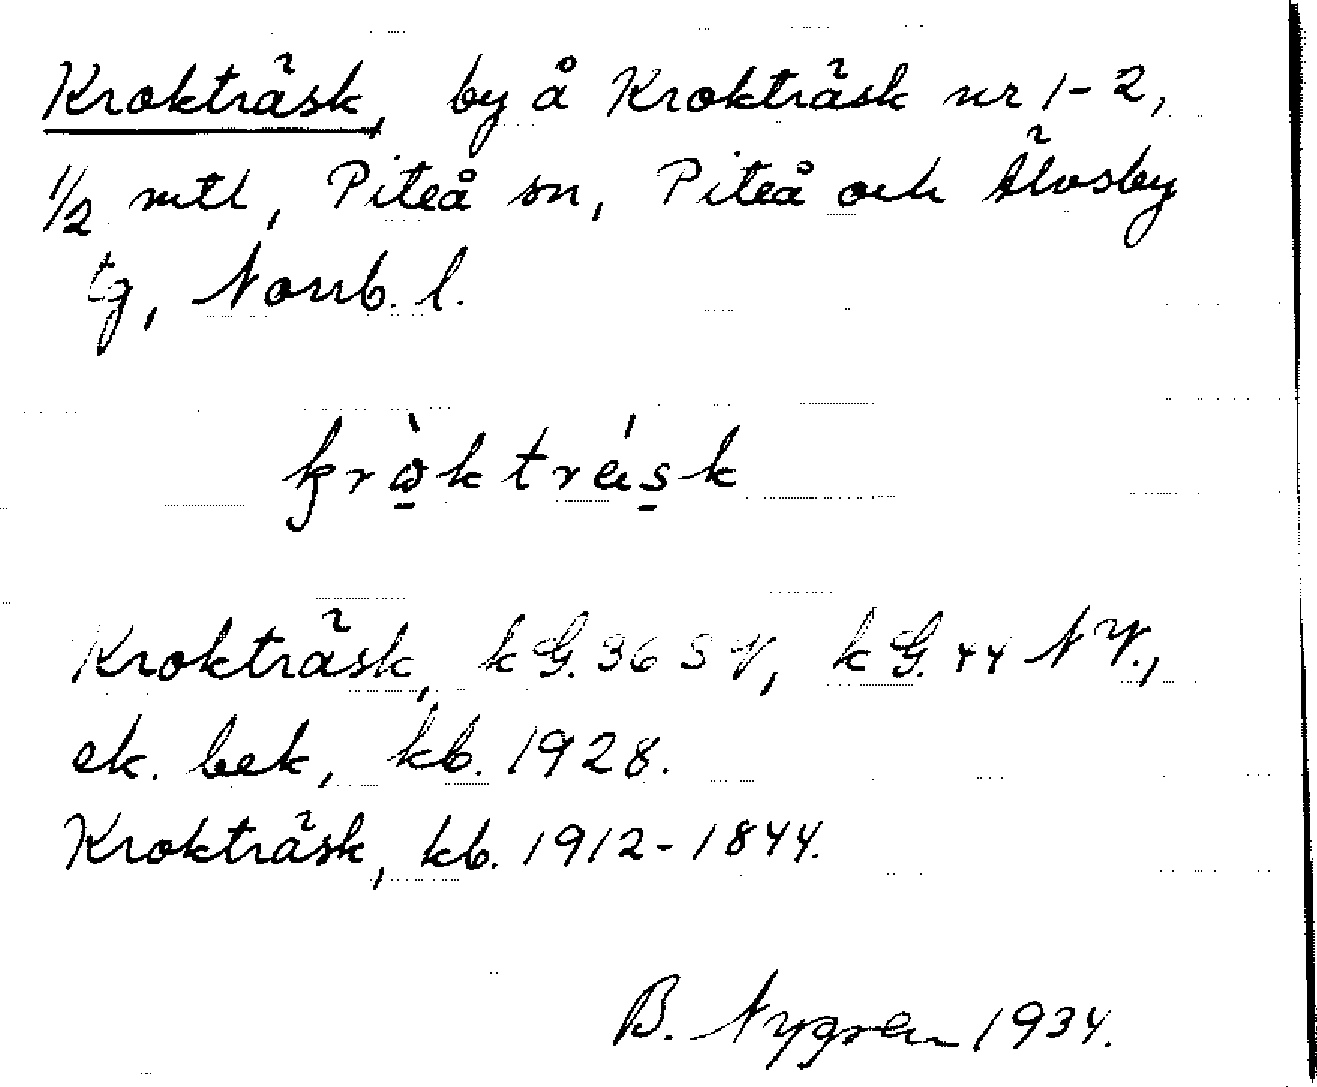 Krokträsk, by å Krokträsk nr 1-2,
1/2 mtl, Piteå sn, Piteå och Älvsby
tg, Norrb. l.
Krokträsk, kG. 36 SV, kG. 44 NV.,
ek. bek, kb. 1928.
Krokträsk, kb. 1912-1844.
B. Nygren 1934.